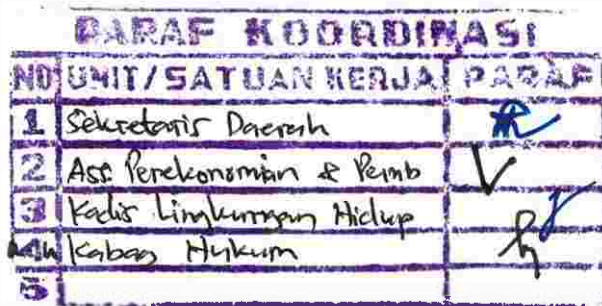 PARAF KOORDINASI
NO UNIT/SATUAN KERJA PARAF
1 Sekretaris Daerah
2 Ass Perekonomian & Pemb
3 Kadis Lingkungan Hidup
4 Kabag Hukum
5